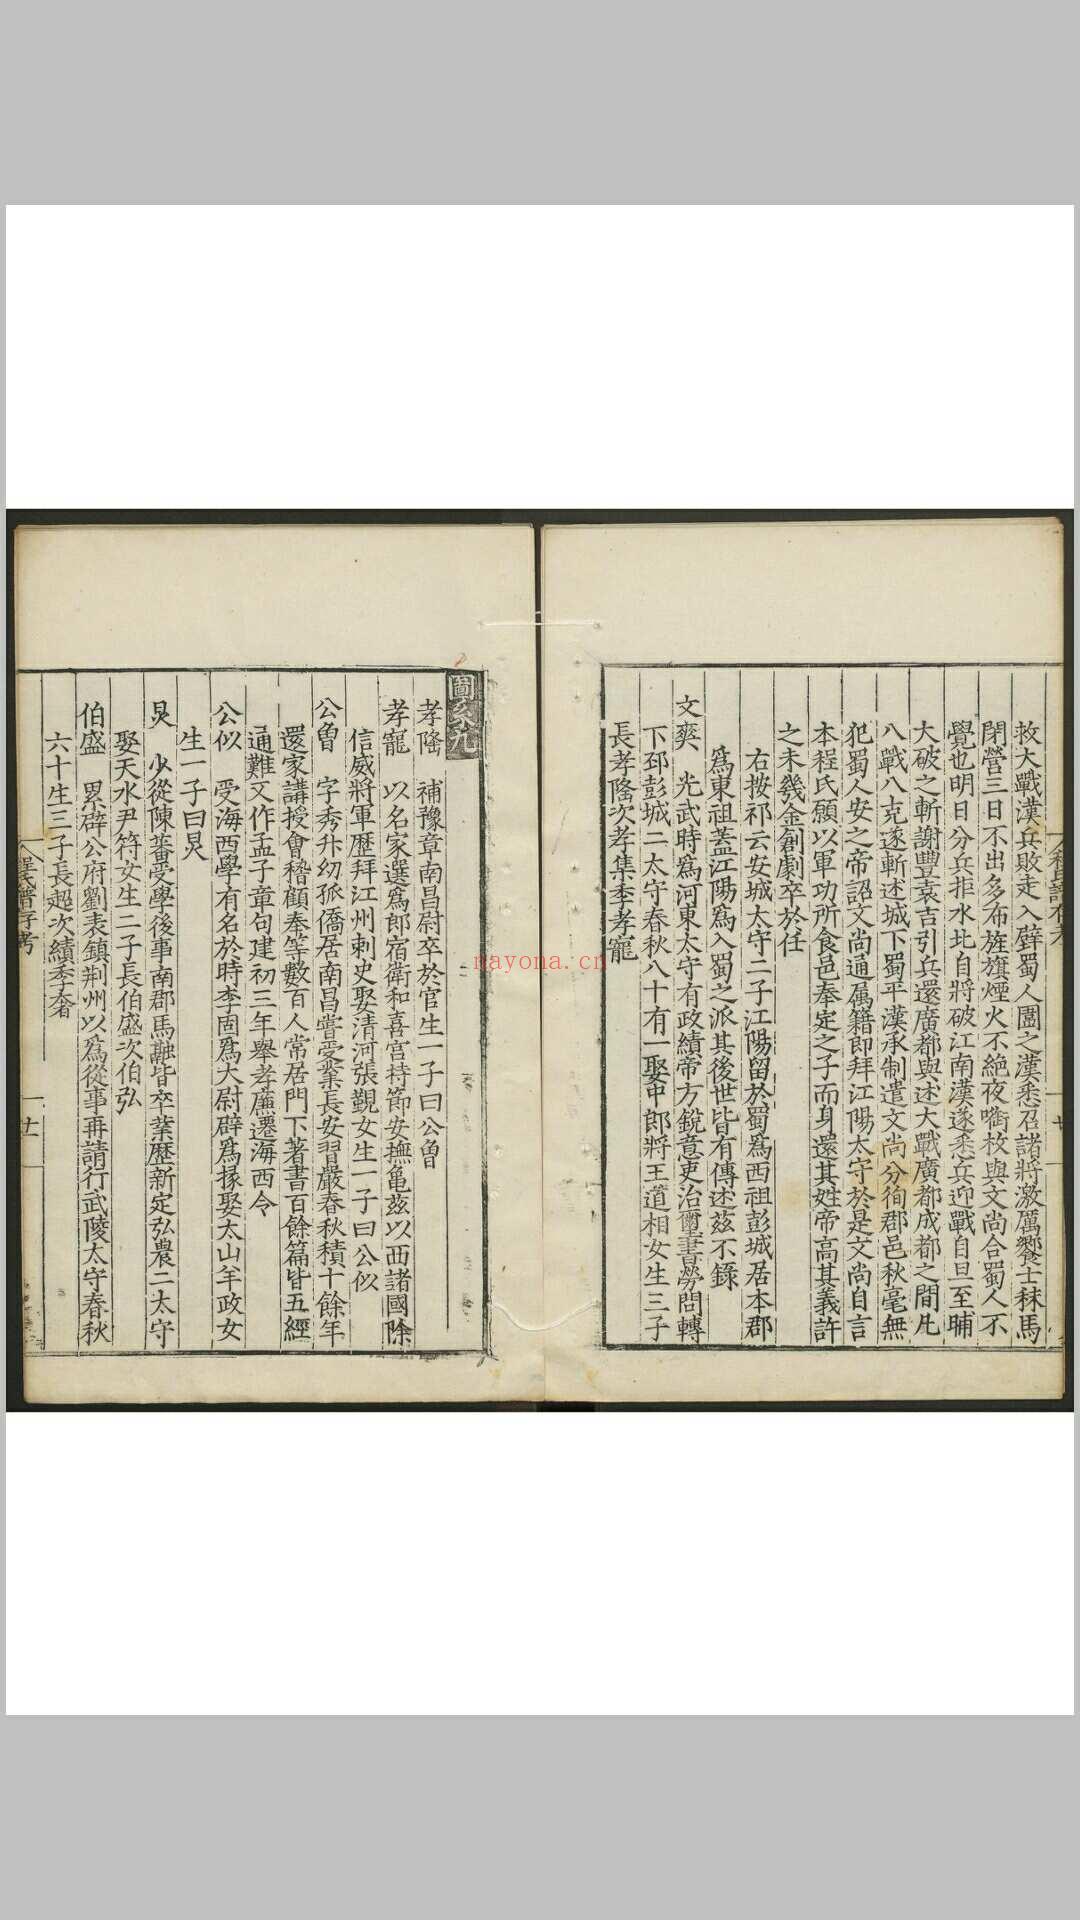 救大戰漢兵敗走入壁蜀人圍之漢悉召諸將激厲饗士秣馬
閉營三日不出多布旌旗煙火不絶夜啣枚與文尚合蜀人不
覺也明日分兵拒水北自將破江南漢遂悉兵迎戰自旦至晡
大破之斬謝豐袁吉引兵還廣都與述大戰廣都成都之間凡
八戰八克遂斬述城下蜀平漢承制遣文尚分徇郡邑秋毫無
犯蜀人安之帝詔文尚通屬籍即拜江陽太守於是文尚自言
本程氏願以軍功所食邑奉定之子而身還其姓帝高其義許
之未幾金創劇卒於任
右按祁云安城太守二子江陽留於蜀爲西祖彭城居本郡
爲東祖蓋江陽爲入蜀之派其後世皆有傳述茲不錄
文奭　光武時爲河東太守有政績帝方銳意吏治璽書勞問轉
下邳彭城二太守春秋八十有一娶中郎將王道相女生三子
長孝隆次孝集季孝寵
圖系九
孝隆　補豫章南昌尉卒於官生一子曰公曾
孝寵　以名家選爲郎宿衛和喜宫持節安撫亀茲以西諸國除
信威將軍歷拜江州刺史娶清河張觀女生一子曰公似
公曾　字秀升幼孤僑居南昌嘗受業長安習嚴春秋積十餘年
還家講授會稽顧奉等數百人常居門下著書百餘篇皆五經
通難又作孟子章句建初三年舉孝廉遷海西令
公似　受海西學有名於時李固爲大尉辟爲掾娶太山羊政女
生一子曰炅
炅　少從陳蕃受學後事南郡馬融皆卒業歷新定弘農二太守
娶天水尹符女生二子長伯盛次伯弘
伯盛　累辟公府劉表鎮荆州以爲從事再請行武陵太守春秋
六十生三子長超次績季奢
程氏譜存考
廿一
nayona.cn